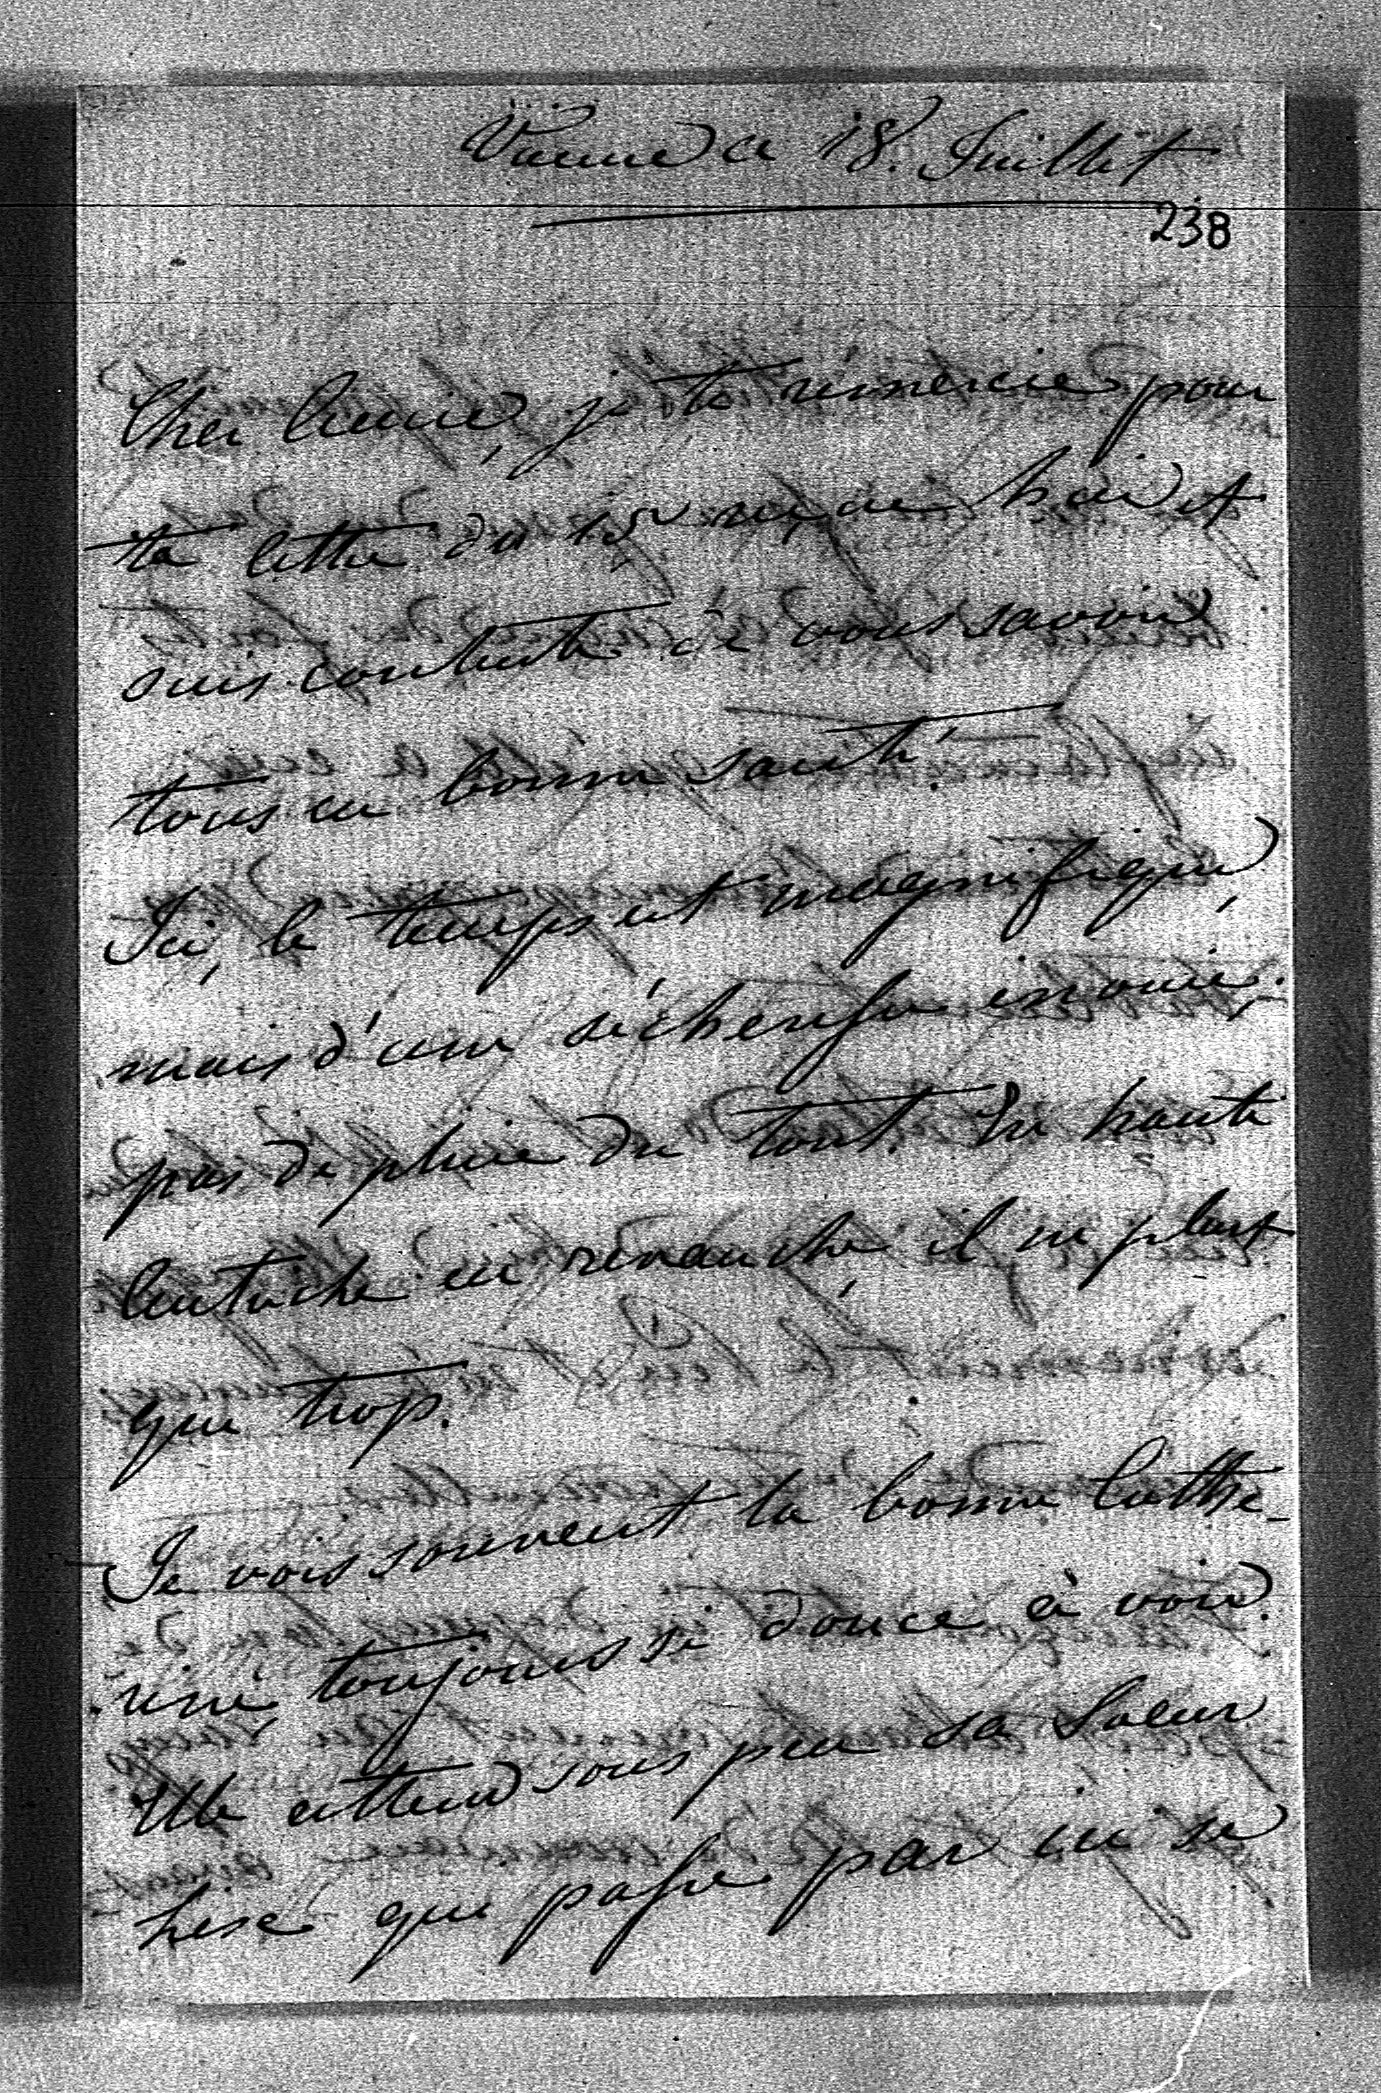 Vienne ce 18. Juillet
238
Cher Annie, je te rémercie pour
ta lettre du 15 reçue hier et
suis contente de vous savoir
tous en bonne santé.
Ici, le temps est magnifique,
mais d'une sécheresse inouie,
pas de pluie du tout. En haute
Autriche en revanche, il ne pleut
que trop.
Je vois souvent la bonne Cathe-
rine, toujours si douce à voir.
Elle attend sous peu sa Soeur
qui passe par ici se